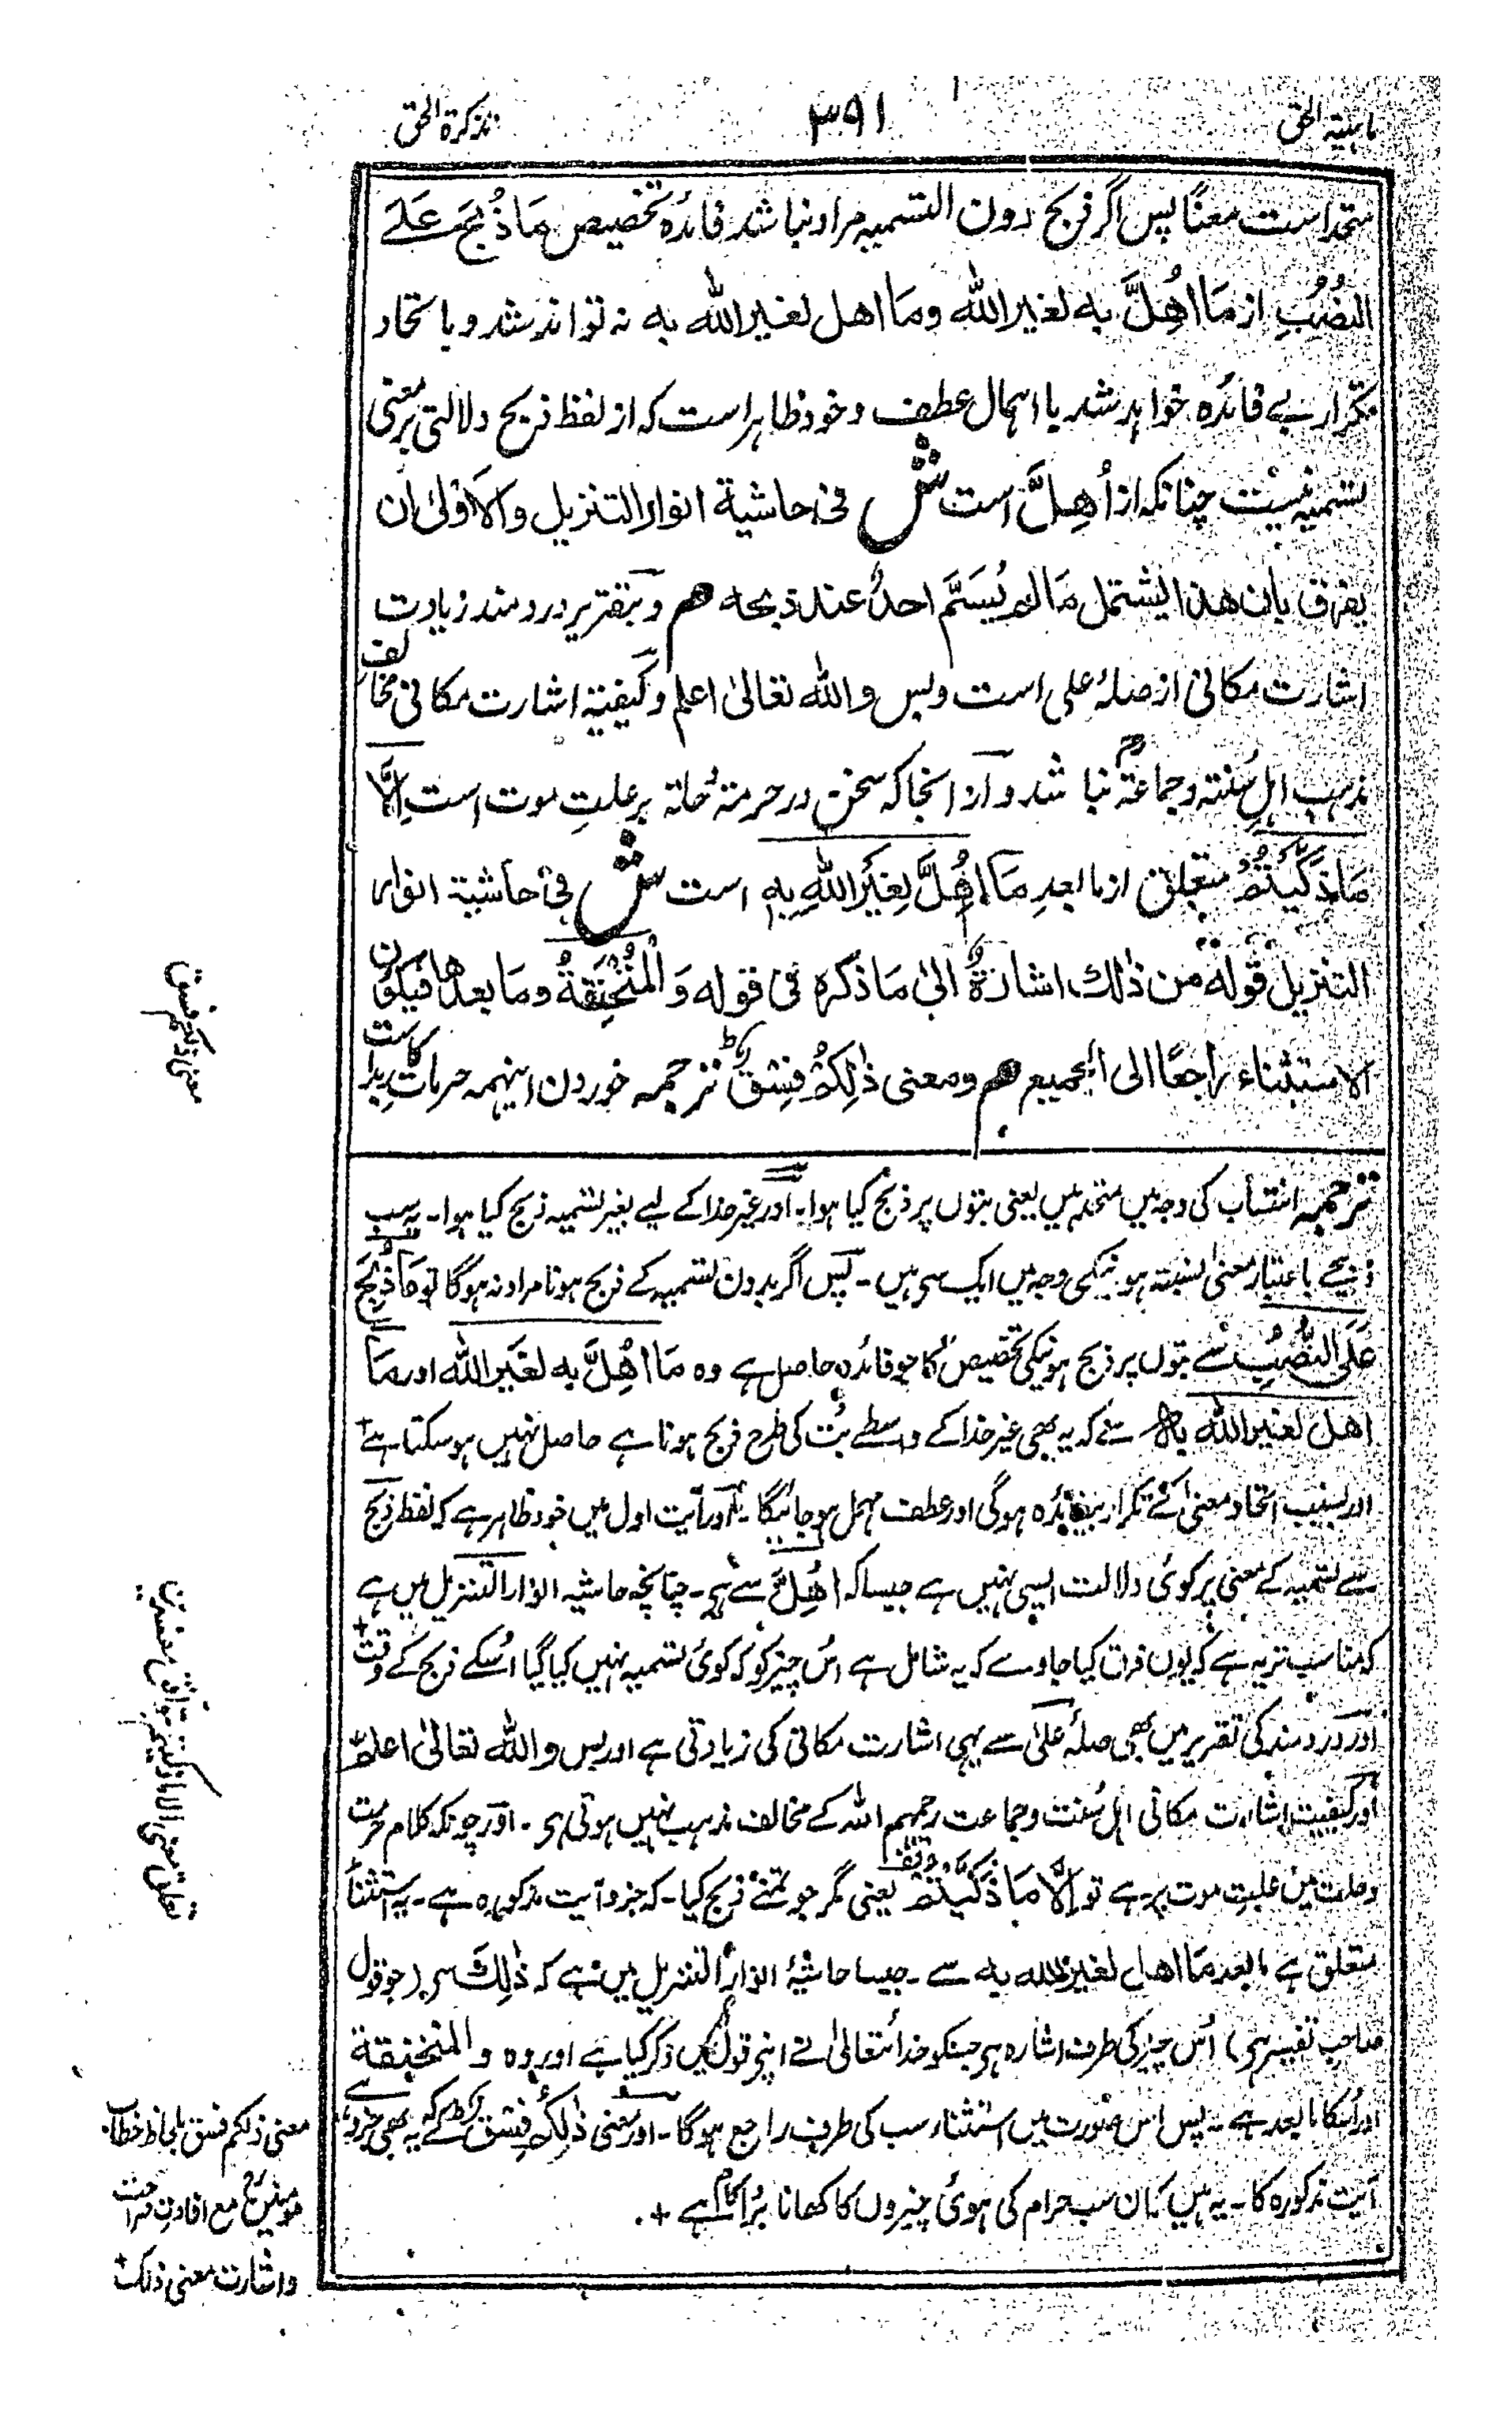 ماہیتہ الحق
۳۹۱
تذکرۃ الحق
متحد است معناً پس اگر ذبح دون التسمیہ مراد نباشد فائدہ تخصیص مَاذُبِحَ عَلَے
النُصُبِ از مَا اُهِلَّ بِهٖ لغیر الله وَمَا اهل لغیر الله به نہ تواند شد و باتحاد
تکرار بے فائدہ خواہد شد یا اہمال عطف و خود ظاہر است کہ از لفظ ذبح دلالتی بر معنی
تسمیہ نیست چنانکہ از اُهِلَّ است ش فی حاشیة انوار التنزیل والاَولیٰ ان
یفرق بان هذا یشتمل مَا لم یُسَمَّ احدٌ عند ذبحه هم و بتقریر دردمند زیادت
اشارت مکانی از صلۂ علی است و بس والله تعالیٰ اعلم و کیفیتہ اشارت مکانی مخالف
مذہب اہل سُنتہ و جماعتہ نباشد و از انجا کہ سخن در حرمتہ و حلتہ بر علتِ موت است اِلَّا
مَا ذَکَّیْتُمْ متعلق از ما بعدِ مَا اُهِلَّ لِغَیْرِ اللهِ بِهٖ است ش فی حاشیة انوار
التنزیل قوله من ذٰلك اشارةٌ الیٰ مَا ذکره فی قوله وَالْمُنْخَنِقَةُ وَمَا بعدها فیکون
الاستثناء راجعًا الی الجمیع هم و معنی ذٰلِکُمْ فِسْقٌ ترجمہ خوردن اینہمہ حرمات بدکار است
معنی ذلکم فسق
ترجمہ انتساب کی وجہ میں متحد ہیں یعنی بتوں پر ذبح کیا ہوا۔ اور غیر خدا کے لیے بغیر تسمیہ ذبح کیا ہوا۔ یہ سب
ذبیحے باعتبار معنیٰ نسبتہ ہونیکی وجہ میں ایک سی ہیں۔ پس اگر بدون تسمیہ کے ذبح ہونا مراد نہ ہوگا تو مَا ذُبِحَ
عَلَی النُّصُبِ سے بتوں پر ذبح ہونیکی تخصیص کا جو فائدہ حاصل ہے وہ مَا اُهِلَّ بِه لغَیرِ الله اور مَا
اهل لغیر الله به سے کہ یہ بھی غیر خدا کے واسطے بُت کی طرح ذبح ہونا ہے حاصل نہیں ہو سکتا ہے
اور بسبب اتحاد معنیٰ کے تکرار بیفائدہ ہوگی اور عطف مہمل ہو جائیگا۔ اور آیت اول میں خود ظاہر ہے کہ لفظ ذبح
سے تسمیہ کے معنی پر کوئی دلالت ایسی نہیں ہے جیسا کہ اُهِلَّ سے ہے۔ چنانچہ حاشیہ انوار التنزیل میں ہے
کہ مناسب تر یہ ہے کہ یوں فرق کیا جاوے کہ یہ شامل ہے اُس چیز کو کہ کوئی تسمیہ نہیں کیا گیا اُسکے ذبح کے وقت
اور دردمند کی تقریر میں بھی صلۂ علیٰ سے یہی اشارت مکانی کی زیادتی ہے اور بس والله تعالیٰ اعلم
اور کیفیت اشارت مکانی اہل سُنت و جماعت رحمہم اللہ کے مخالف مذہب نہیں ہوتی ہی۔ اور چونکہ کلام حرمت
وحلت میں علیتِ موت پر ہے تو اِلَّا مَا ذَکَّیْتُمْ یعنی مگر جو تمنے ذبح کیا۔ کہ جزو آیت مذکورہ ہے۔ یہ استثناً
متعلق ہے مابعد مَا اهل لغیر الله به سے۔ جیسا حاشیۂ انوار التنزیل میں ہے کہ ذٰلِكَ سے (جو قول
صاحب تفسیر ہی) اُس چیز کی طرف اشارہ ہی جسکو خدا تعالیٰ نے اپنے قول میں ذکر کیا ہے اور وہ والمنخنقة
اور اُسکا مابعد ہے۔ پس اس صورت میں استثناء سب کی طرف راجع ہوگا۔ اور معنی ذٰلِکُمْ فِسْقٌ کے کہ یہ بھی جزو ہے
آیت مذکورہ کا۔ یہ ہیں کہ ان سب حرام کی ہوئی چیزوں کا کھانا بُرا کام ہے +
معنی ذلکم فسق بلحاظ خطاب
مومنین مع افادت صراحت
واشارت معنی ذلک